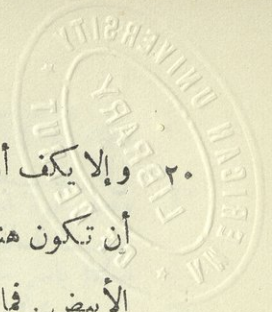 AMERICAN UNIVERSITY OF BEIRUT
LIBRARY
٢٠ وإلا يكف أ
أن تكون هنـ
الأبيض. فما